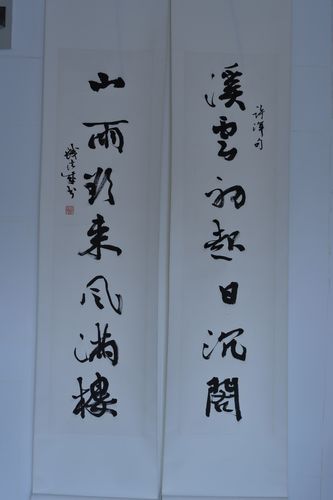 溪雲初起日沉閣
許渾句
山雨欲來風滿樓